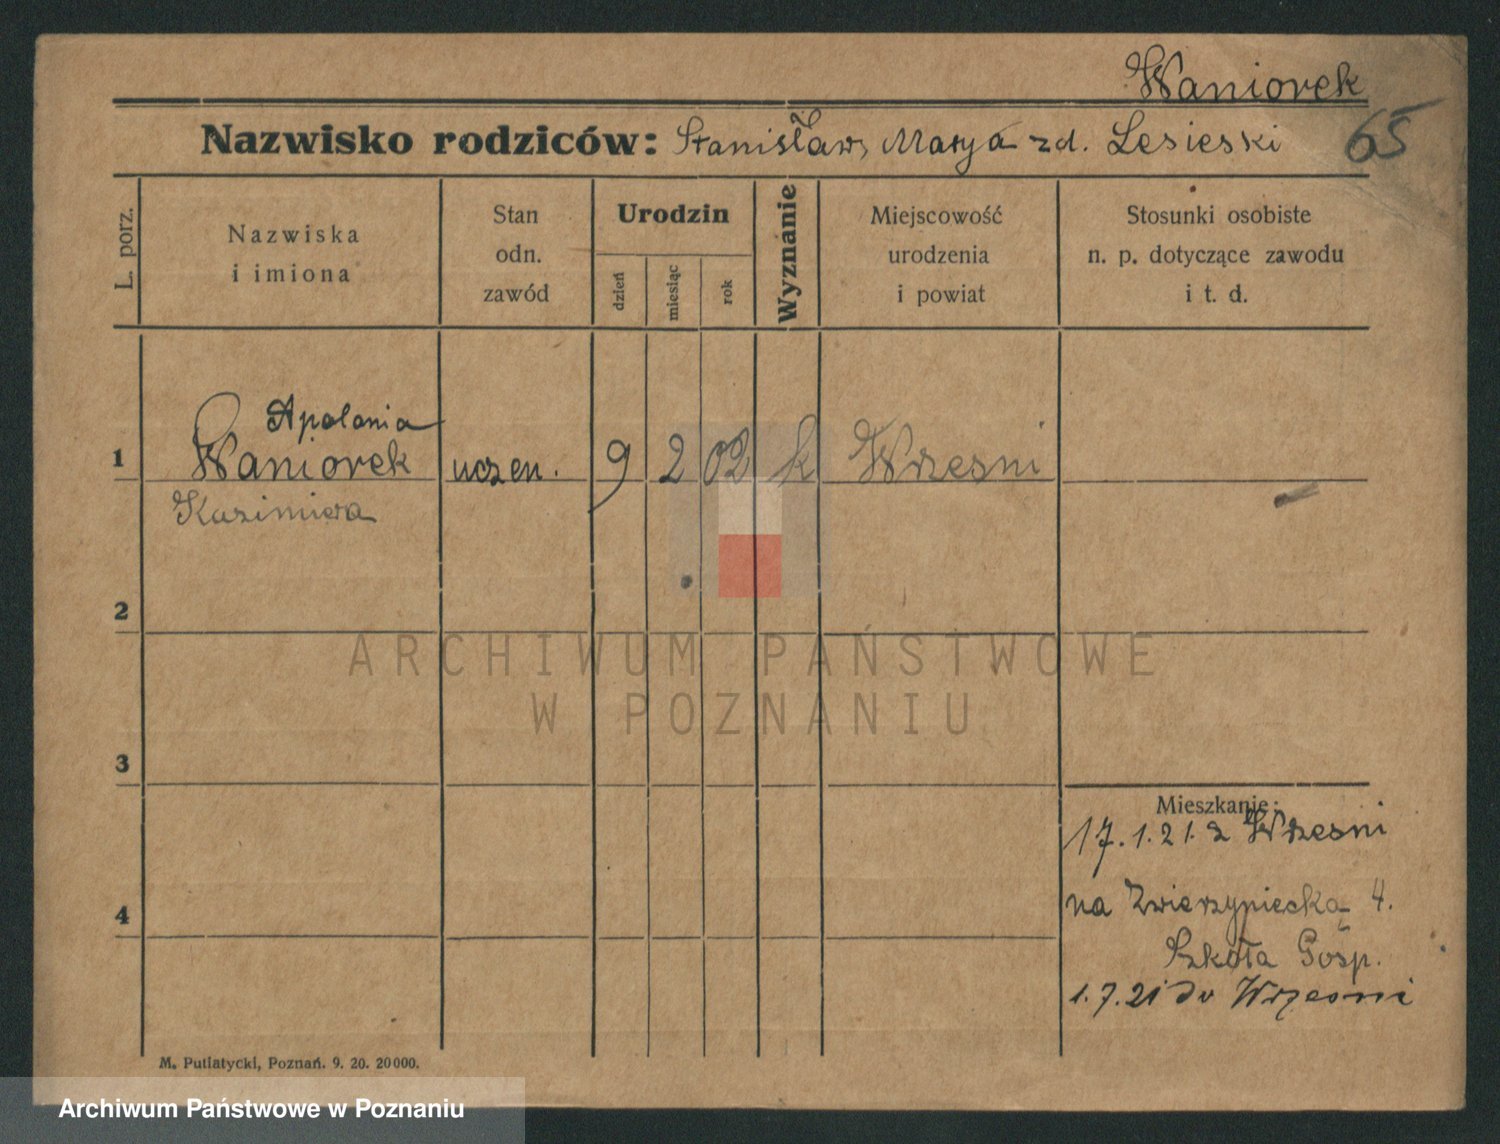 Waniorek
Nazwisko rodziców: Stanisław, Marya zd. Lesieski
65
L. porz.
Nazwiska
i imiona
Stan
odn.
zawód
Urodzin
dzień
miesiąc
rok
Wyznanie
Miejscowość
urodzenia
i powiat
Stosunki osobiste
n. p. dotyczące zawodu
i t. d.
Apolonia
1 Waniorek uczen. 9 2 02 k Wrzesni
Kazimiera
2
ARCHIWUM PAŃSTWOWE
W POZNANIU
3
Mieszkanie:
17.1.21. z Wrzesni
4
na Zwierzyniecką 4.
Szkoła Gosp.
1.7.21 do Wrzesni
M. Putiatycki, Poznań. 9. 20. 20000.
Archiwum Państwowe w Poznaniu